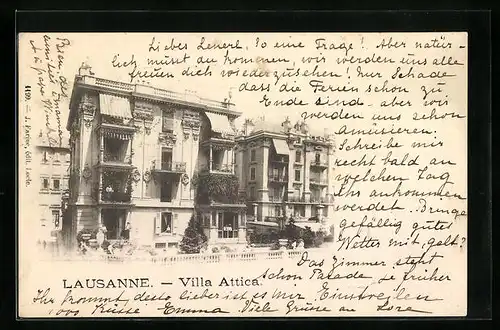 Liebes Lenerl, So eine Frage! Aber natür-
lich müsst du kommen, wir werden uns alle
freuen dich wiederzusehen! Nur Schade
dass die Ferien schon zu
Ende sind - aber wir
werden uns schon
amüsieren:
Schreibe mir
recht bald an
welchen Tag
Ihr ankommen
werdet. Bringe
gefällig gutes
Wetter mit, gelt?
Das Zimmer steht
schon Parade. Je früher
Ihr kommt desto lieber ist es mir Einstweilen
1000 Küsse Emma Viele Grüsse an Lora
LAUSANNE. — Villa Attica.
4109. — J.